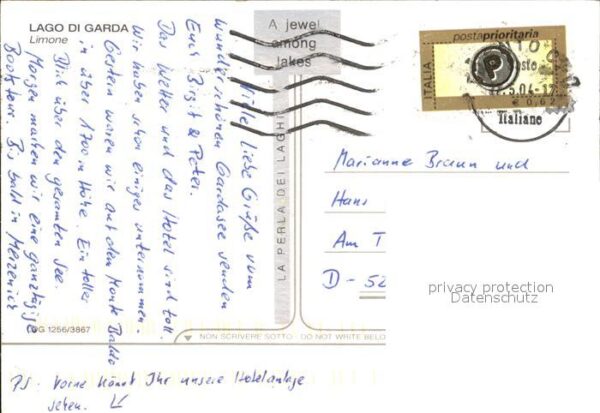 LAGO DI GARDA
Limone
A jewel
among
lakes
postaprioritaria
ITALIA
P
.5.04-12
€ 0,62
Italiane
Viele liebe Grüße vom
wunderschönen Gardasee senden
Euch Birgit & Peter.
Das Wetter und das Hotel sind toll.
Wir haben schon einiges unternommen.
Gestern waren wir auf dem Monte Baldo
in über 1700 m Höhe. Ein toller
Blick über den gesamten See.
Morgen machen wir eine ganztägige
Bootstour. Bis bald in Merzenich
LA PERLA DEI LAGHI
Marianne Braun und
Hans
Am T
D - 52
privacy protection
Datenschutz
OG 1256/3867
NON SCRIVERE SOTTO - DO NOT WRITE BELOW
PS: Vorne könnt Ihr unsere Hotelanlage
sehen.